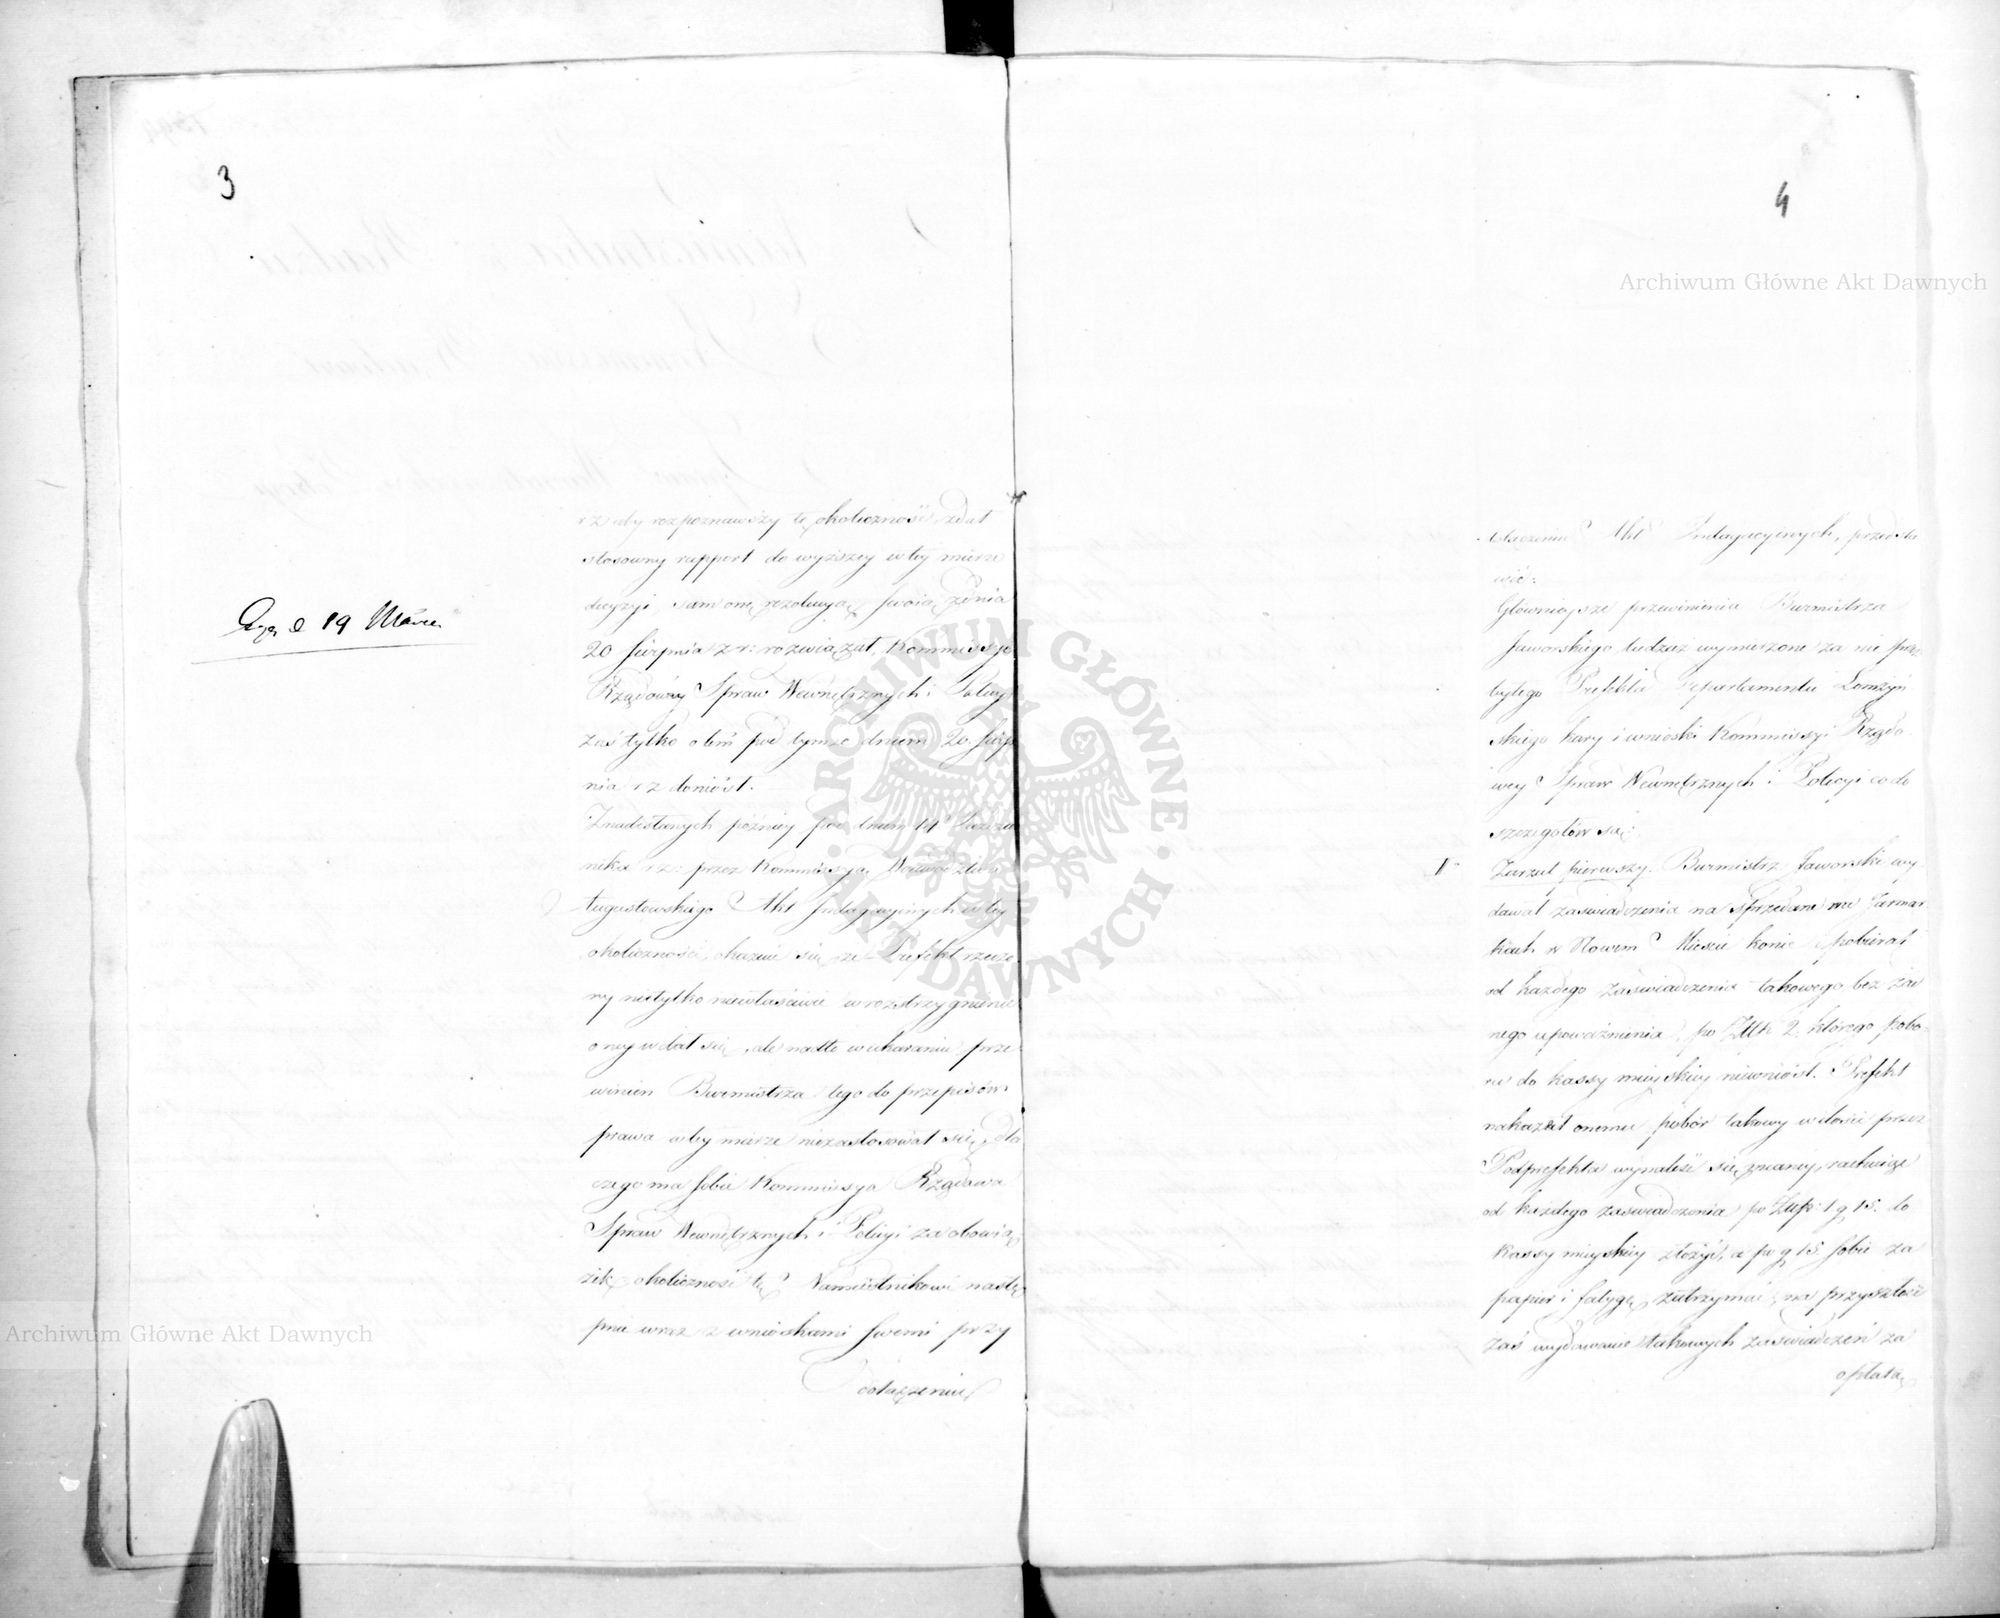 3
19 Marca
rz aby rozpoznawszy tę okoliczność zdał
stosowny rapport do wyższey w tey mierze
decyzyi, sam onę rezolucyą swoią z dnia
20 Sierpnia r z: rozwiązał, Kommissyę
Rządową Spraw Wewnętrznych i Policyi
zaś tylko o tém pod tymże dniem 20. Sierp
nia r z doniósł.
Z nadesłanych późniey pod dniem 14 Paździer
nika r z: przez Kommissyą Wojewodztwa
Augustowskiego Akt Indagacyinych w tey
okoliczności, okazuie się że Prefekt rzeczo
ny nietylko niewłaściwie w rozstrzygnienie
oney wdał się, ale nadto w ukaraniu prze
winien Burmistrza tego do przepisów
prawa w tey mierze niezastosował się, dla
czego ma sobie Kommissya Rządowa
Spraw Wewnętrznych i Policyi za obowią
zek okoliczność tę Namiestnikowi nastę
pnie wraz z wnioskami swemi przy
dołączeniu
4
dołączeniu Akt Indagacyinych, przedsta
wić:
Głównieysze przewinienia Burmistrza
Jaworskiego tudzież wymierzone za nie przez
byłego Prefekta Departamentu Łomżyń
skiego kary i wnioski Kommissyi Rządo
wey Spraw Wewnętrznych i Policyi co do
szczegołów są:
Zarzut pierwszy. Burmistrz Jaworski wy
dawał zaświadczenia na sprzedane na Jarmar
kach w Nowem Mieście konie i pobierał
od każdego zaświadczenia takowego bez żad
nego upoważnienia, po Złł 2. którego pobo
ru do kassy mieyskiey niewniósł. Prefekt
nakazał onemu pobór takowy w ilości przez
Podprefekta wynaleść się maiącey, rachuiąc
od każdego zaświadczenia po Złłp: 1 g 15. do
Kassy mieyskiey złożyć, a po g 15. sobie za
papier i fatygę zatrzymać, na przyszłość
zaś wydawanie takowych zaświadczeń za
opłatą
Archiwum Główne Akt Dawnych
Archiwum Główne Akt Dawnych
ARCHIWUM GŁÓWNE AKT DAWNYCH